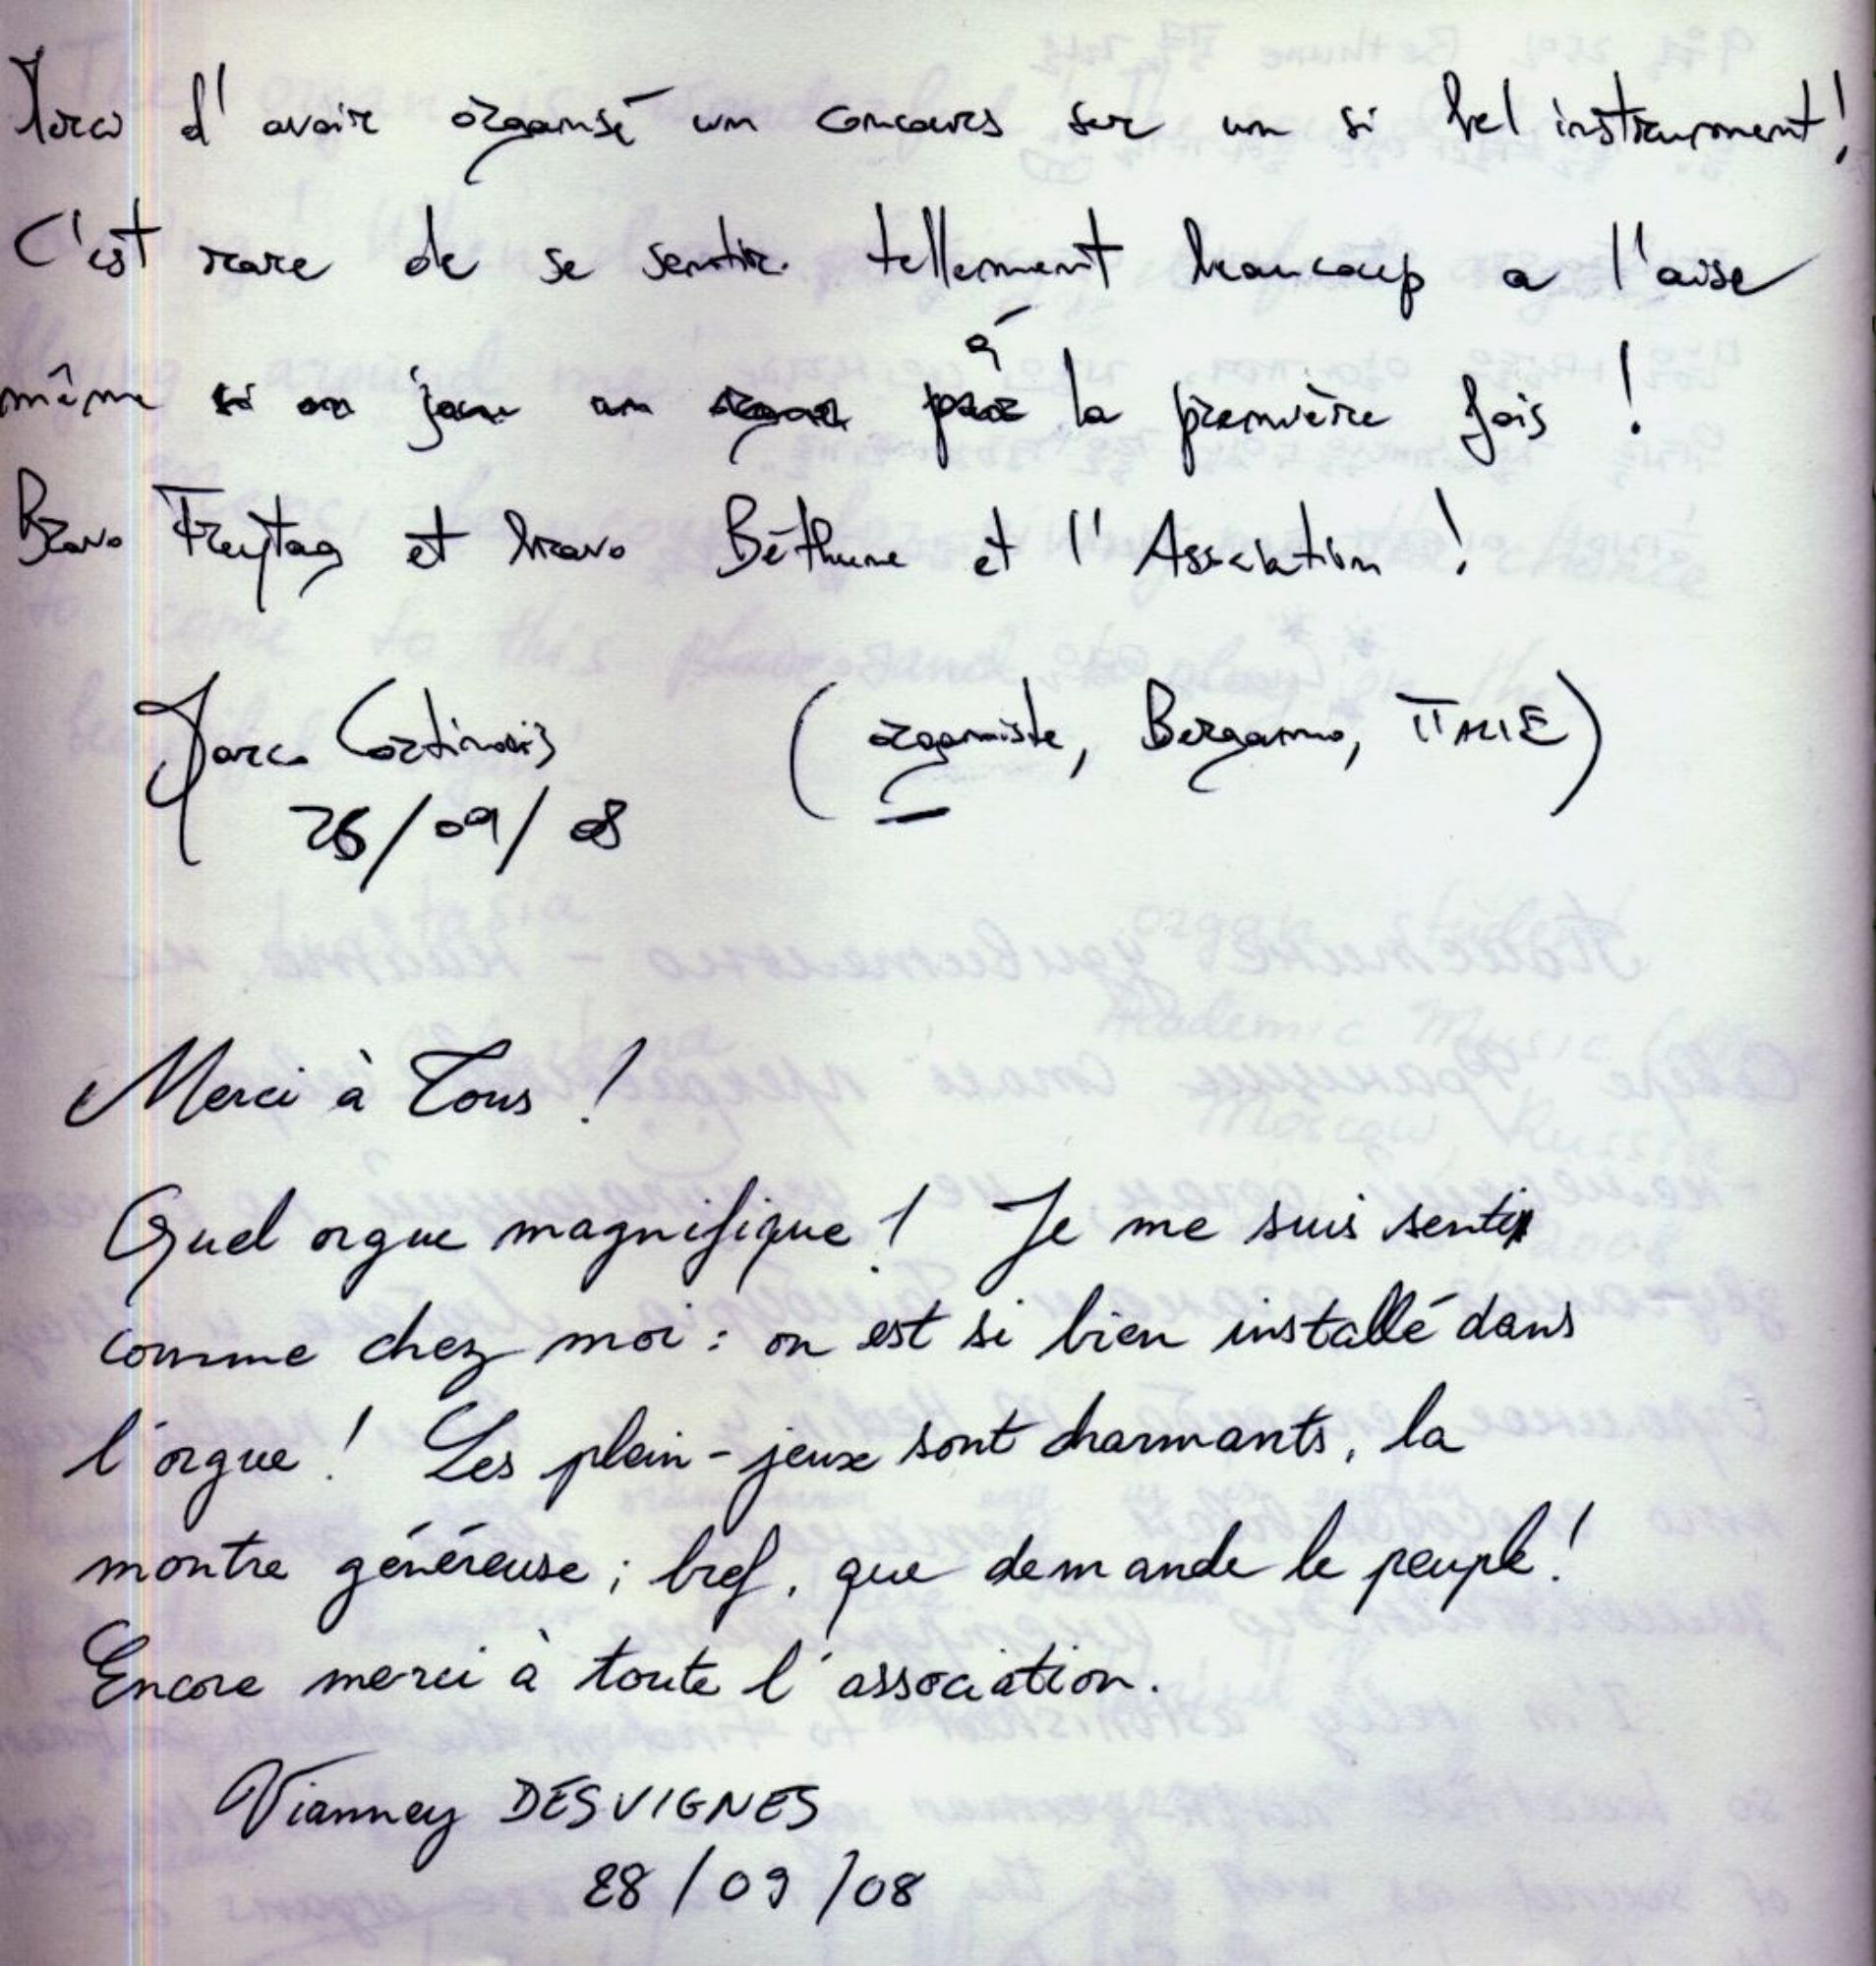 Merci d'avoir organisé un concours sur un si bel instrument!
C'est rare de se sentir tellement beaucoup a l'aise
même si on joue un orgue à la première fois !
Bravo Freytag et bravo Béthune et l'Association !
Marco Cortinovis (organiste, Bergamo, ITALIE)
26/09/08
Merci à Tous !
Quel orgue magnifique ! Je me suis senti
comme chez moi : on est si bien installé dans
l'orgue ! Les plein-jeux sont charmants, la
montre généreuse ; bref, que demande le peuple !
Encore merci à toute l'association.
Vianney DESVIGNES
28/09/08